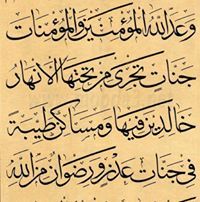 وعد الله المؤمنين والمؤمنات
جنات تجري من تحتها الأنهار
خالدين فيها ومساكن طيبة
في جنات عدن ورضوان من الله